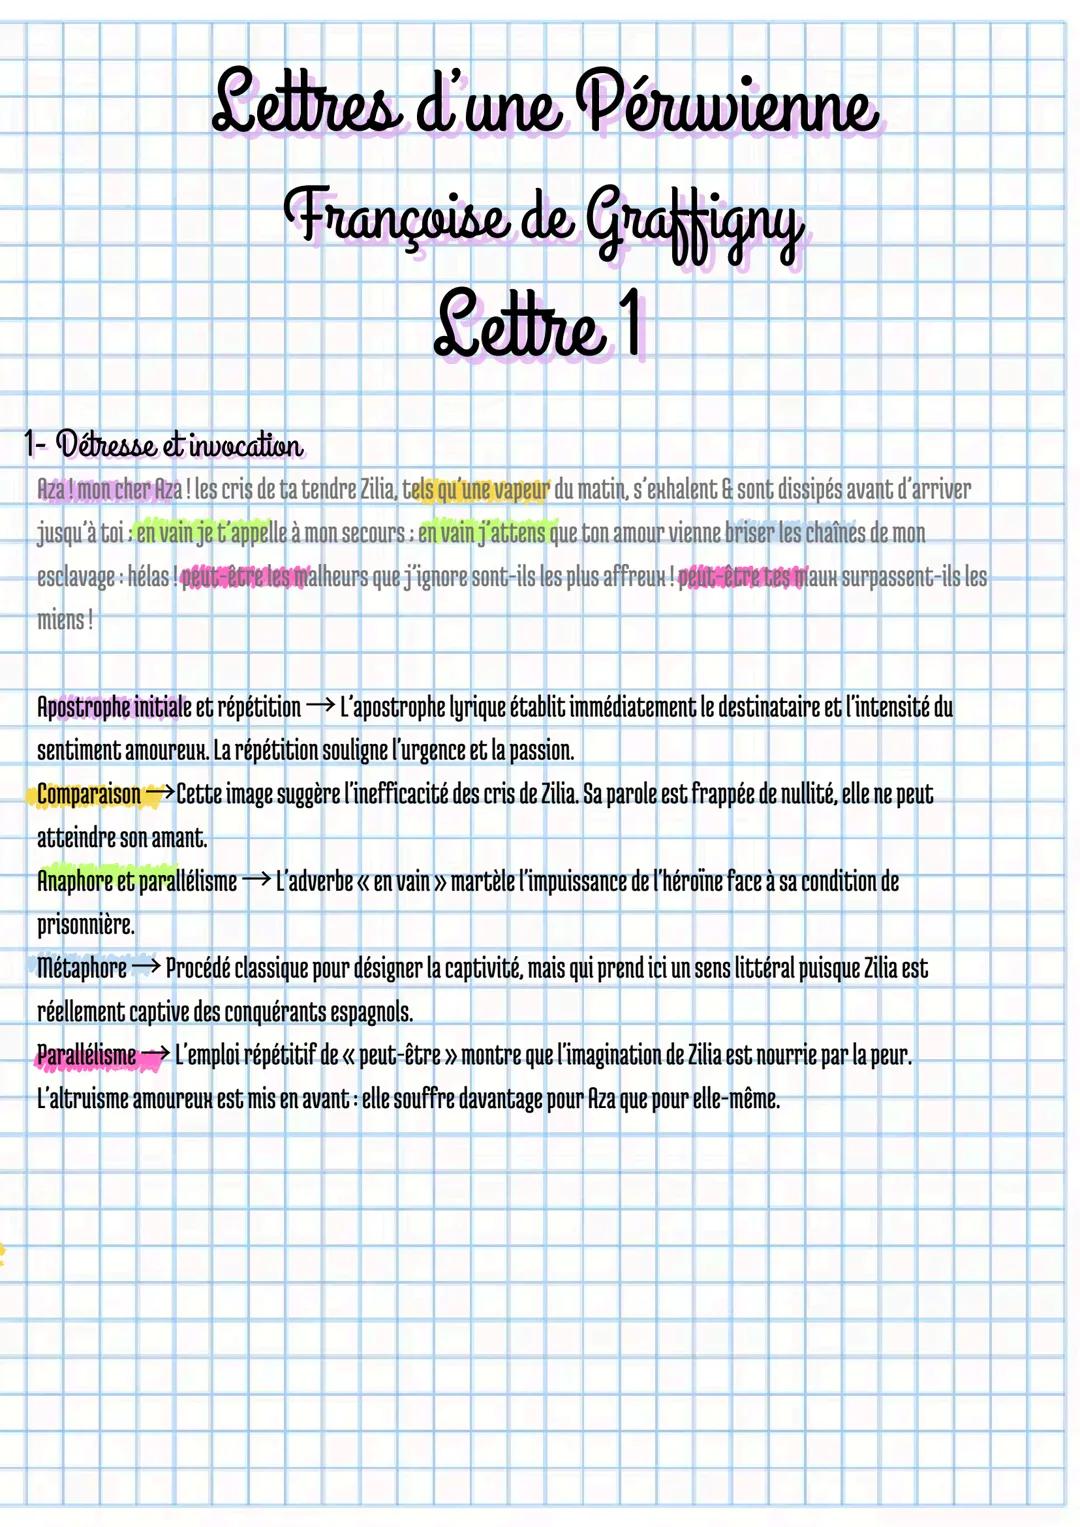 Lettres d'une Péruvienne
Françoise de Graffigny
Lettre 1
1- Détresse et invocation
Aza ! mon cher Aza ! les cris de ta tendre Zilia, tels qu'une vapeur du matin, s'exhalent & sont dissipés avant d'arriver
jusqu'à toi ; en vain je t'appelle à mon secours ; en vain j'attens que ton amour vienne briser les chaînes de mon
esclavage : hélas ! peut-être les malheurs que j'ignore sont-ils les plus affreux ! peut-être tes maux surpassent-ils les
miens !
Apostrophe initiale et répétition → L'apostrophe lyrique établit immédiatement le destinataire et l'intensité du
sentiment amoureux. La répétition souligne l'urgence et la passion.
Comparaison → Cette image suggère l'inefficacité des cris de Zilia. Sa parole est frappée de nullité, elle ne peut
atteindre son amant.
Anaphore et parallélisme → L'adverbe « en vain » martèle l'impuissance de l'héroïne face à sa condition de
prisonnière.
Métaphore → Procédé classique pour désigner la captivité, mais qui prend ici un sens littéral puisque Zilia est
réellement captive des conquérants espagnols.
Parallélisme → L'emploi répétitif de « peut-être » montre que l'imagination de Zilia est nourrie par la peur.
L'altruisme amoureux est mis en avant : elle souffre davantage pour Aza que pour elle-même.